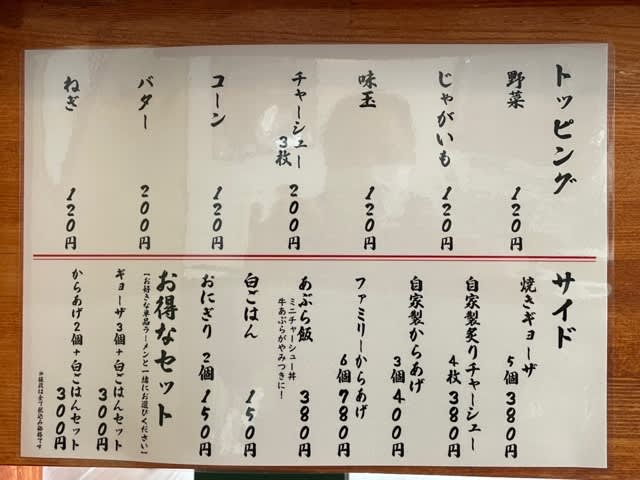 トッピング
野菜 120円
じゃがいも 120円
味玉 120円
チャーシュー3枚 200円
コーン 120円
バター 200円
ねぎ 120円
サイド
焼きギョーザ 5個380円
自家製炙りチャーシュー 4枚380円
自家製からあげ 3個400円
ファミリーからあげ 6個780円
あぶら飯 380円
ミニチャーシュー丼
牛あぶらがやみつきに!
白ごはん 150円
おにぎり 2個 150円
お得なセット
【お好きな単品ラーメンと一緒にお選びください】
ギョーザ3個+白ごはんセット 300円
からあげ2個+白ごはんセット 300円
※価格は全て税込み価格です